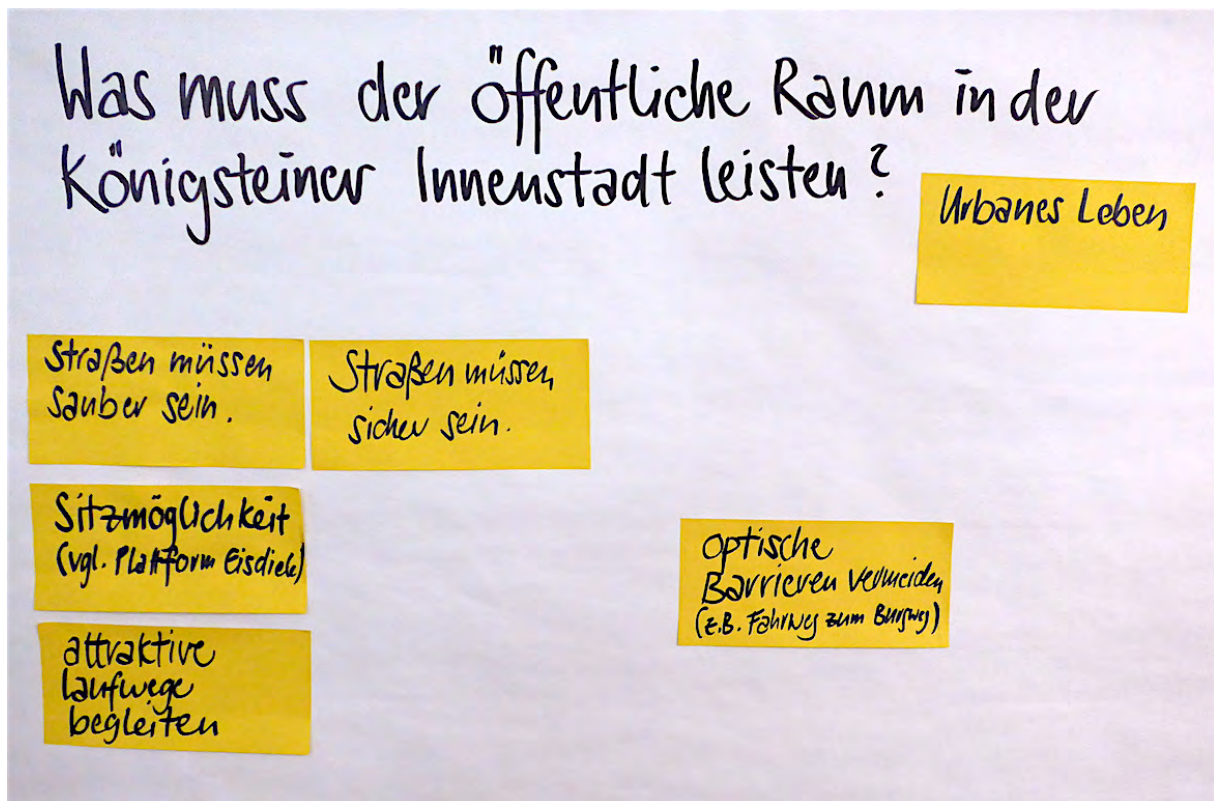 Was muss der öffentliche Raum in der
Königsteiner Innenstadt leisten?
Urbanes Leben
Straßen müssen
sauber sein.
Straßen müssen
sicher sein.
Sitzmöglichkeit
(vgl. Plattform Eisdiele)
optische
Barrieren vermeiden
(z.B. Fahrweg zum Burgweg)
attraktive
Laufwege
begleiten